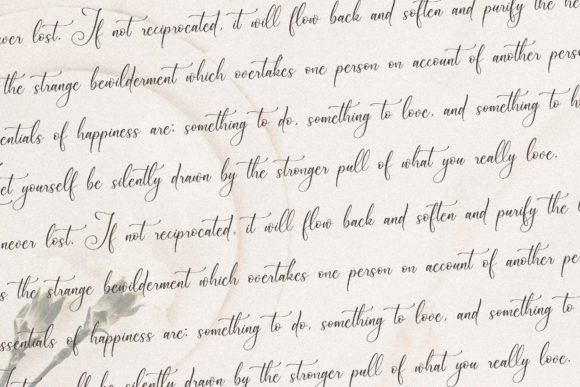 never lost. If not reciprocated, it will flow back and soften and purify the
the strange bewilderment which overtakes one person on account of another
essentials of happiness are: something to do, something to love, and something to
yourself be silently drawn by the stronger pull of what you really love.
never lost. If not reciprocated, it will flow back and soften and purify the
the strange bewilderment which overtakes one person on account of another
essentials of happiness are: something to do, something to love, and something to
be silently drawn by the stronger pull of what you really love.